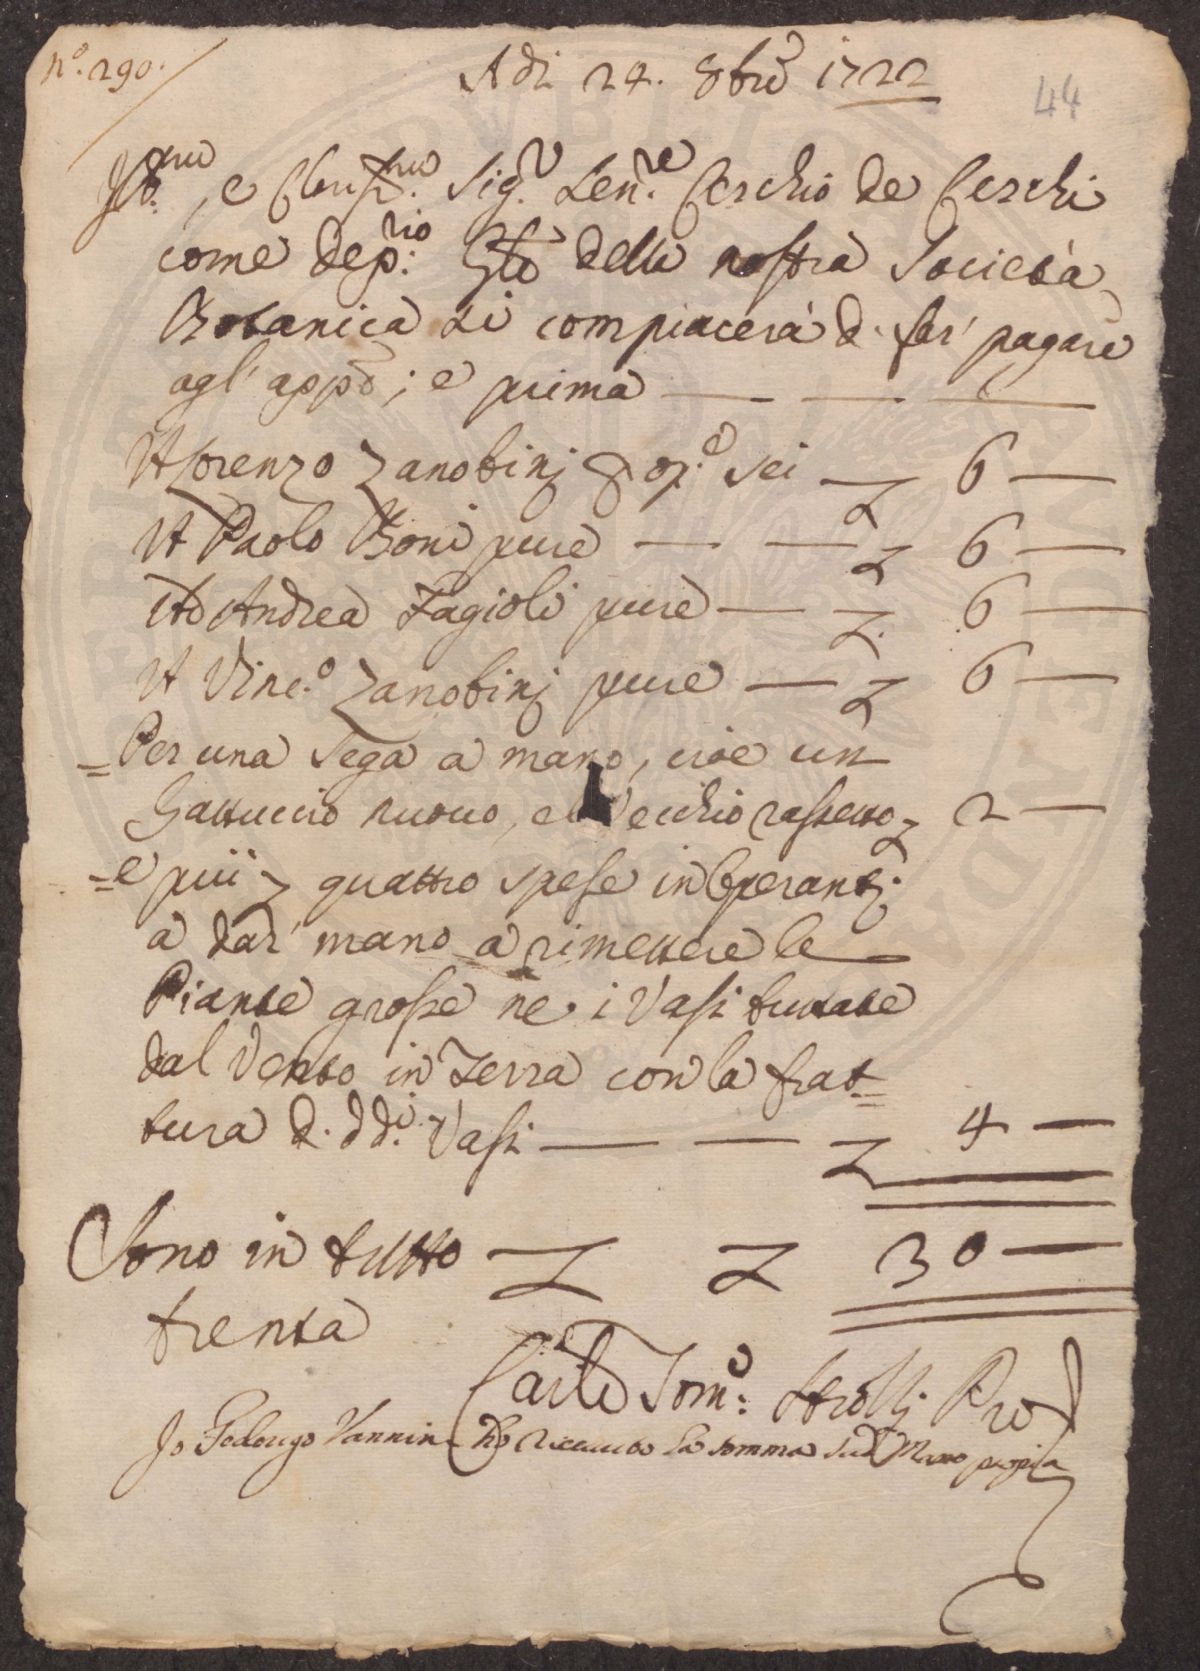 N.º 290.
Adi 24. 8bre 1722
44
Ill.mo, e Clariss.mo Sig.r Sen.re Cerchio de Cerchi
come dep.rio Gle della nostra Società
Botanica si compiacerà d. far' pagare
agl' appo; e prima
A Lorenzo Zanobinj p op.e sei 6
A Paolo Boni pure 6
Ad Andrea Fagioli pure 6
A Vinc.o Zanobinj pure 6
= Per una sega a mano, cioè un
Gattuccio nuovo, e vecchio rassetto 2
= e più quattro spese in Operantj
a dar' mano a rimettere le
Piante grosse ne i Vasi buttate
dal Vento in Terra con la frat=
tura d. dd.i Vasi 4
Sono in tutto 30
trenta
Carlo Tom.o Strozzj Pro
Io Vannini ho riceuuto la somma sud Mano propia